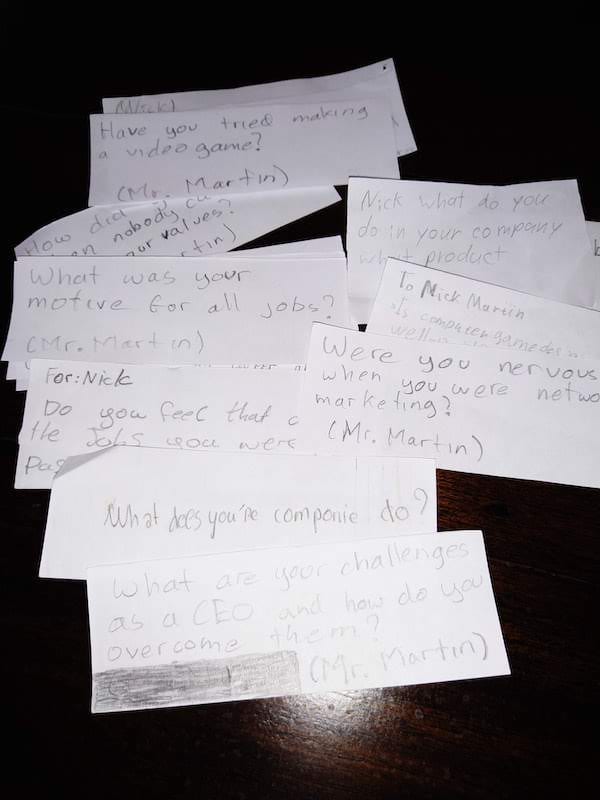 (Nick)
Have you tried making
a video game?
(Mr. Martin)
How did
nobody
values?
What was your
motive for all jobs?
(Mr. Martin)
Nick what do you
do in your company
what product
To Nick Martin
Is computer game
well
Were you nervous
when you were netwo
marketing?
(Mr. Martin)
For: Nick
Do you feel that
the Jobs you were
pas
What does you're companie do?
What are your challenges
as a CEO and how do you
overcome them?
(Mr. Martin)